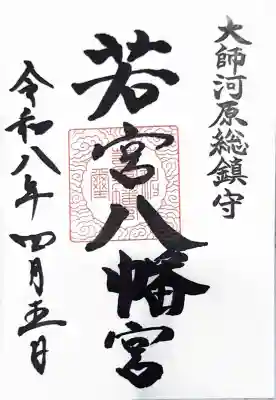 大師河原総鎮守
若宮八幡宮
令和八年四月五日